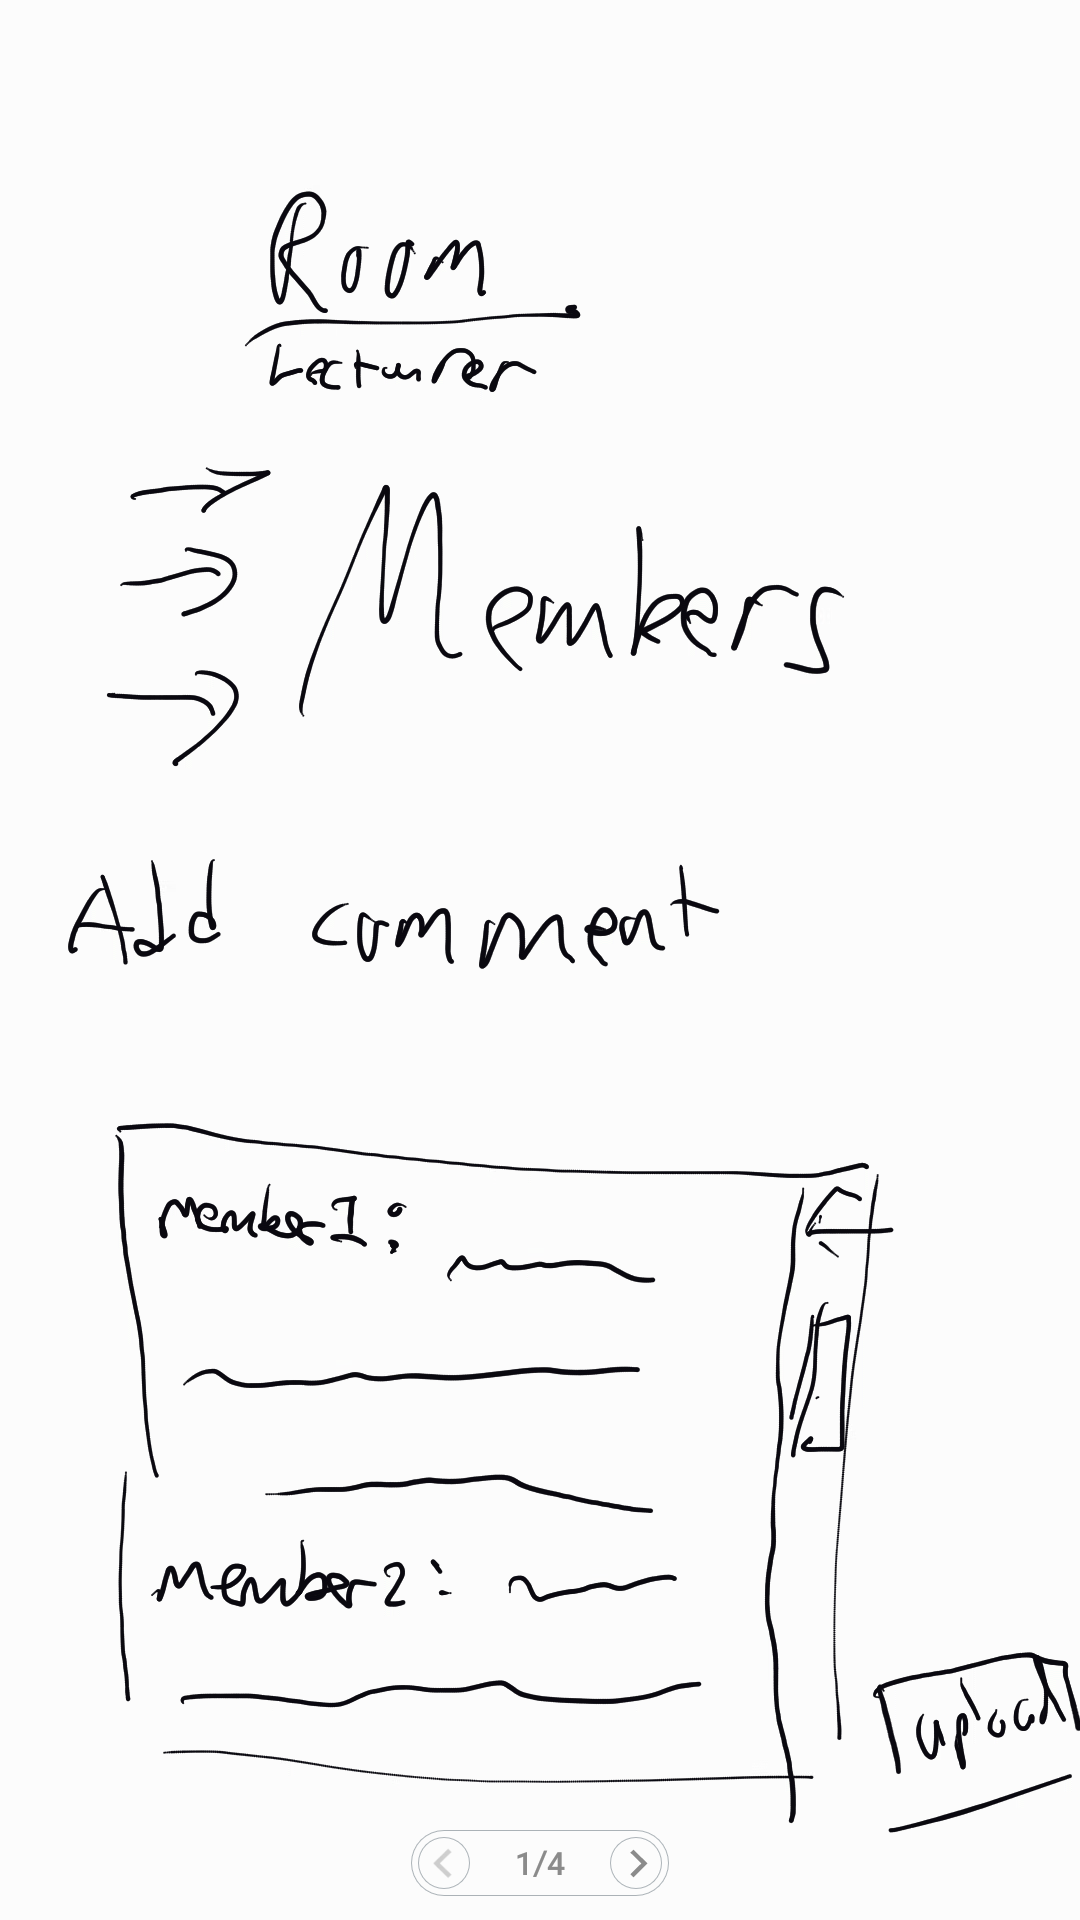 Room
Lecturer
Members
Add comment
member1:
member2:
upload
1/4